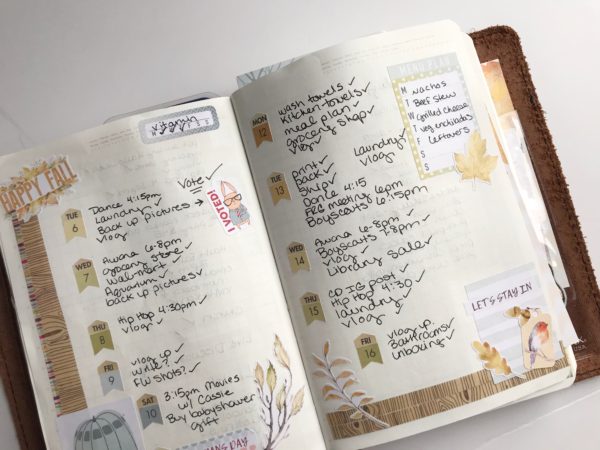 HAPPY FALL
TUE
6
Vote ✓
Dance 4:15pm
Laundry ✓
Back up pictures ✓
vlog ✓
I VOTED!
WED
7
Awana 6-8pm
grocery store ✓
Walmart ✓
Aquarium ✓
back up pictures ✓
THU
8
Hip Hop 4:30pm ✓
vlog ✓
FRI
9
vlog up ✓
write? ✓
FW shots? ✓
SAT
10
3:15pm Movies
w/ Cassie
Buy babyshower
gift ✓
MON
12
wash towels ✓
kitchen towels ✓
meal plan ✓
grocery shop ✓
vlog ✓
TUE
13
print ✓
pack ✓
ship ✓
Dance 4:15
meeting 6pm
Boyscouts 6:15pm
laundry ✓
vlog ✓
WED
14
Awana 6-8pm ✓
Boyscouts 7-8pm ✓
vlog ✓
Library sale ✓
THU
15
IG post ✓
Hip Hop 4:30 ✓
laundry ✓
vlog ✓
FRI
16
vlog up ✓
Bathrooms ✓
unboxing ✓
MENU PLAN
M nachos
T Beef stew
W grilled cheese
T veg enchiladas
F leftovers
S
S
LET'S STAY IN